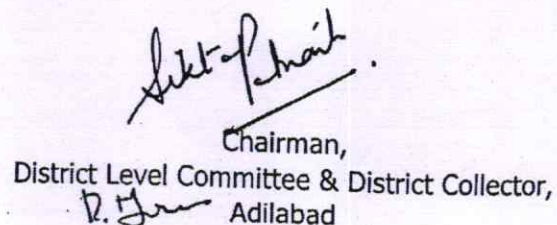 Sikta Patnaik
Chairman,
District Level Committee & District Collector,
Adilabad